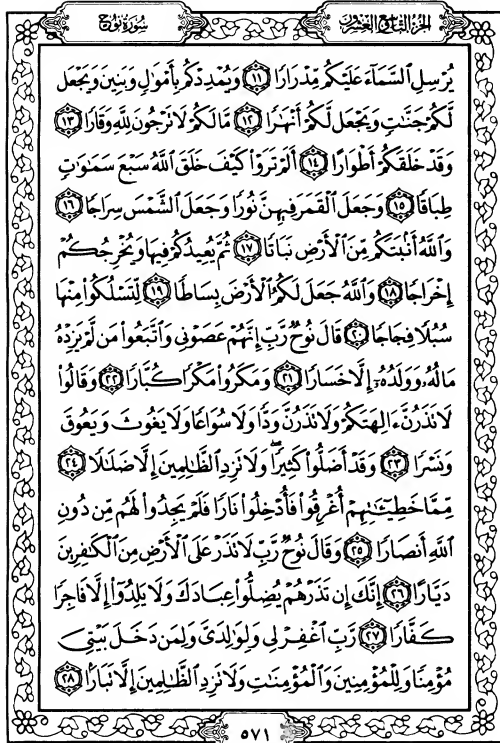 سورة نوح
الجزء التاسع والعشرون
يُرْسِلِ ٱلسَّمَآءَ عَلَيْكُم مِّدْرَارًا ١١ وَيُمْدِدْكُم بِأَمْوَٰلٍ وَبَنِينَ وَيَجْعَل
لَّكُمْ جَنَّٰتٍ وَيَجْعَل لَّكُمْ أَنْهَٰرًا ١٢ مَّا لَكُمْ لَا تَرْجُونَ لِلَّهِ وَقَارًا ١٣
وَقَدْ خَلَقَكُمْ أَطْوَارًا ١٤ أَلَمْ تَرَوْا۟ كَيْفَ خَلَقَ ٱللَّهُ سَبْعَ سَمَٰوَٰتٍ
طِبَاقًا ١٥ وَجَعَلَ ٱلْقَمَرَ فِيهِنَّ نُورًا وَجَعَلَ ٱلشَّمْسَ سِرَاجًا ١٦
وَٱللَّهُ أَنۢبَتَكُم مِّنَ ٱلْأَرْضِ نَبَاتًا ١٧ ثُمَّ يُعِيدُكُمْ فِيهَا وَيُخْرِجُكُمْ
إِخْرَاجًا ١٨ وَٱللَّهُ جَعَلَ لَكُمُ ٱلْأَرْضَ بِسَاطًا ١٩ لِّتَسْلُكُوا۟ مِنْهَا
سُبُلًا فِجَاجًا ٢٠ قَالَ نُوحٌ رَّبِّ إِنَّهُمْ عَصَوْنِى وَٱتَّبَعُوا۟ مَن لَّمْ يَزِدْهُ
مَالُهُۥ وَوَلَدُهُۥٓ إِلَّا خَسَارًا ٢١ وَمَكَرُوا۟ مَكْرًا كُبَّارًا ٢٢ وَقَالُوا۟
لَا تَذَرُنَّ ءَالِهَتَكُمْ وَلَا تَذَرُنَّ وَدًّا وَلَا سُوَاعًا وَلَا يَغُوثَ وَيَعُوقَ
وَنَسْرًا ٢٣ وَقَدْ أَضَلُّوا۟ كَثِيرًا ۖ وَلَا تَزِدِ ٱلظَّٰلِمِينَ إِلَّا ضَلَٰلًا ٢٤
مِّمَّا خَطِيٓـَٰٔتِهِمْ أُغْرِقُوا۟ فَأُدْخِلُوا۟ نَارًا فَلَمْ يَجِدُوا۟ لَهُم مِّن دُونِ
ٱللَّهِ أَنصَارًا ٢٥ وَقَالَ نُوحٌ رَّبِّ لَا تَذَرْ عَلَى ٱلْأَرْضِ مِنَ ٱلْكَٰفِرِينَ
دَيَّارًا ٢٦ إِنَّكَ إِن تَذَرْهُمْ يُضِلُّوا۟ عِبَادَكَ وَلَا يَلِدُوٓا۟ إِلَّا فَاجِرًا
كَفَّارًا ٢٧ رَّبِّ ٱغْفِرْ لِى وَلِوَٰلِدَىَّ وَلِمَن دَخَلَ بَيْتِىَ
مُؤْمِنًا وَلِلْمُؤْمِنِينَ وَٱلْمُؤْمِنَٰتِ وَلَا تَزِدِ ٱلظَّٰلِمِينَ إِلَّا تَبَارًۢا ٢٨
٥٧١